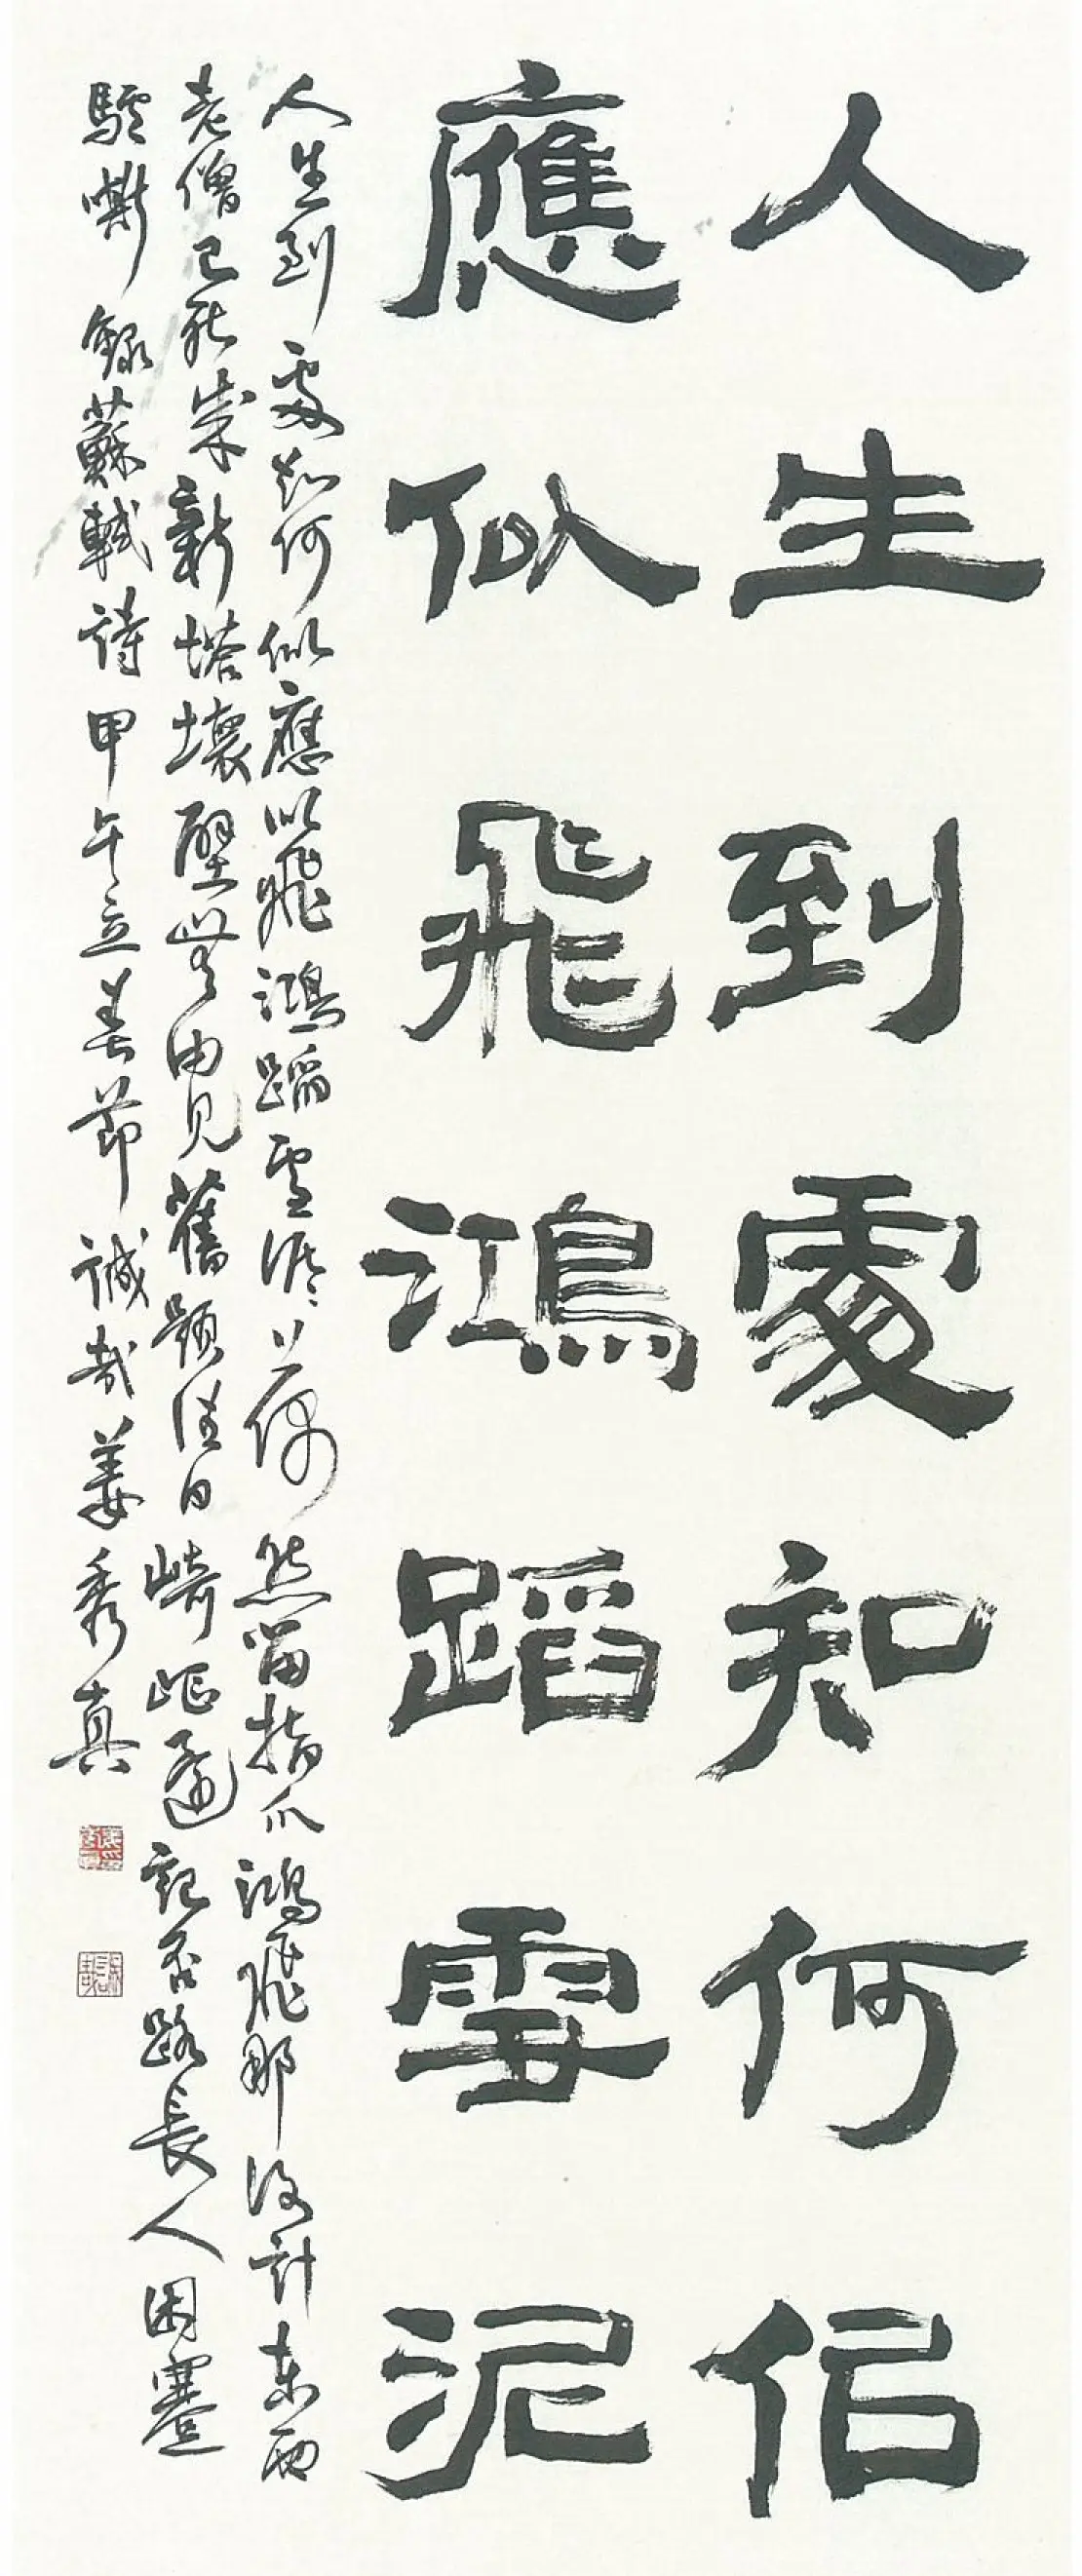 人生到處知何佀
應似飛鴻蹈雪泥
人生到處知何似應似飛鴻蹈雪泥泥上偶然留指爪鴻飛那復計東西
老僧已死成新塔壞壁無由見舊題往日崎嶇還記否路長人困蹇
驢嘶錄蘇軾詩甲午立春節誠哉姜秀真